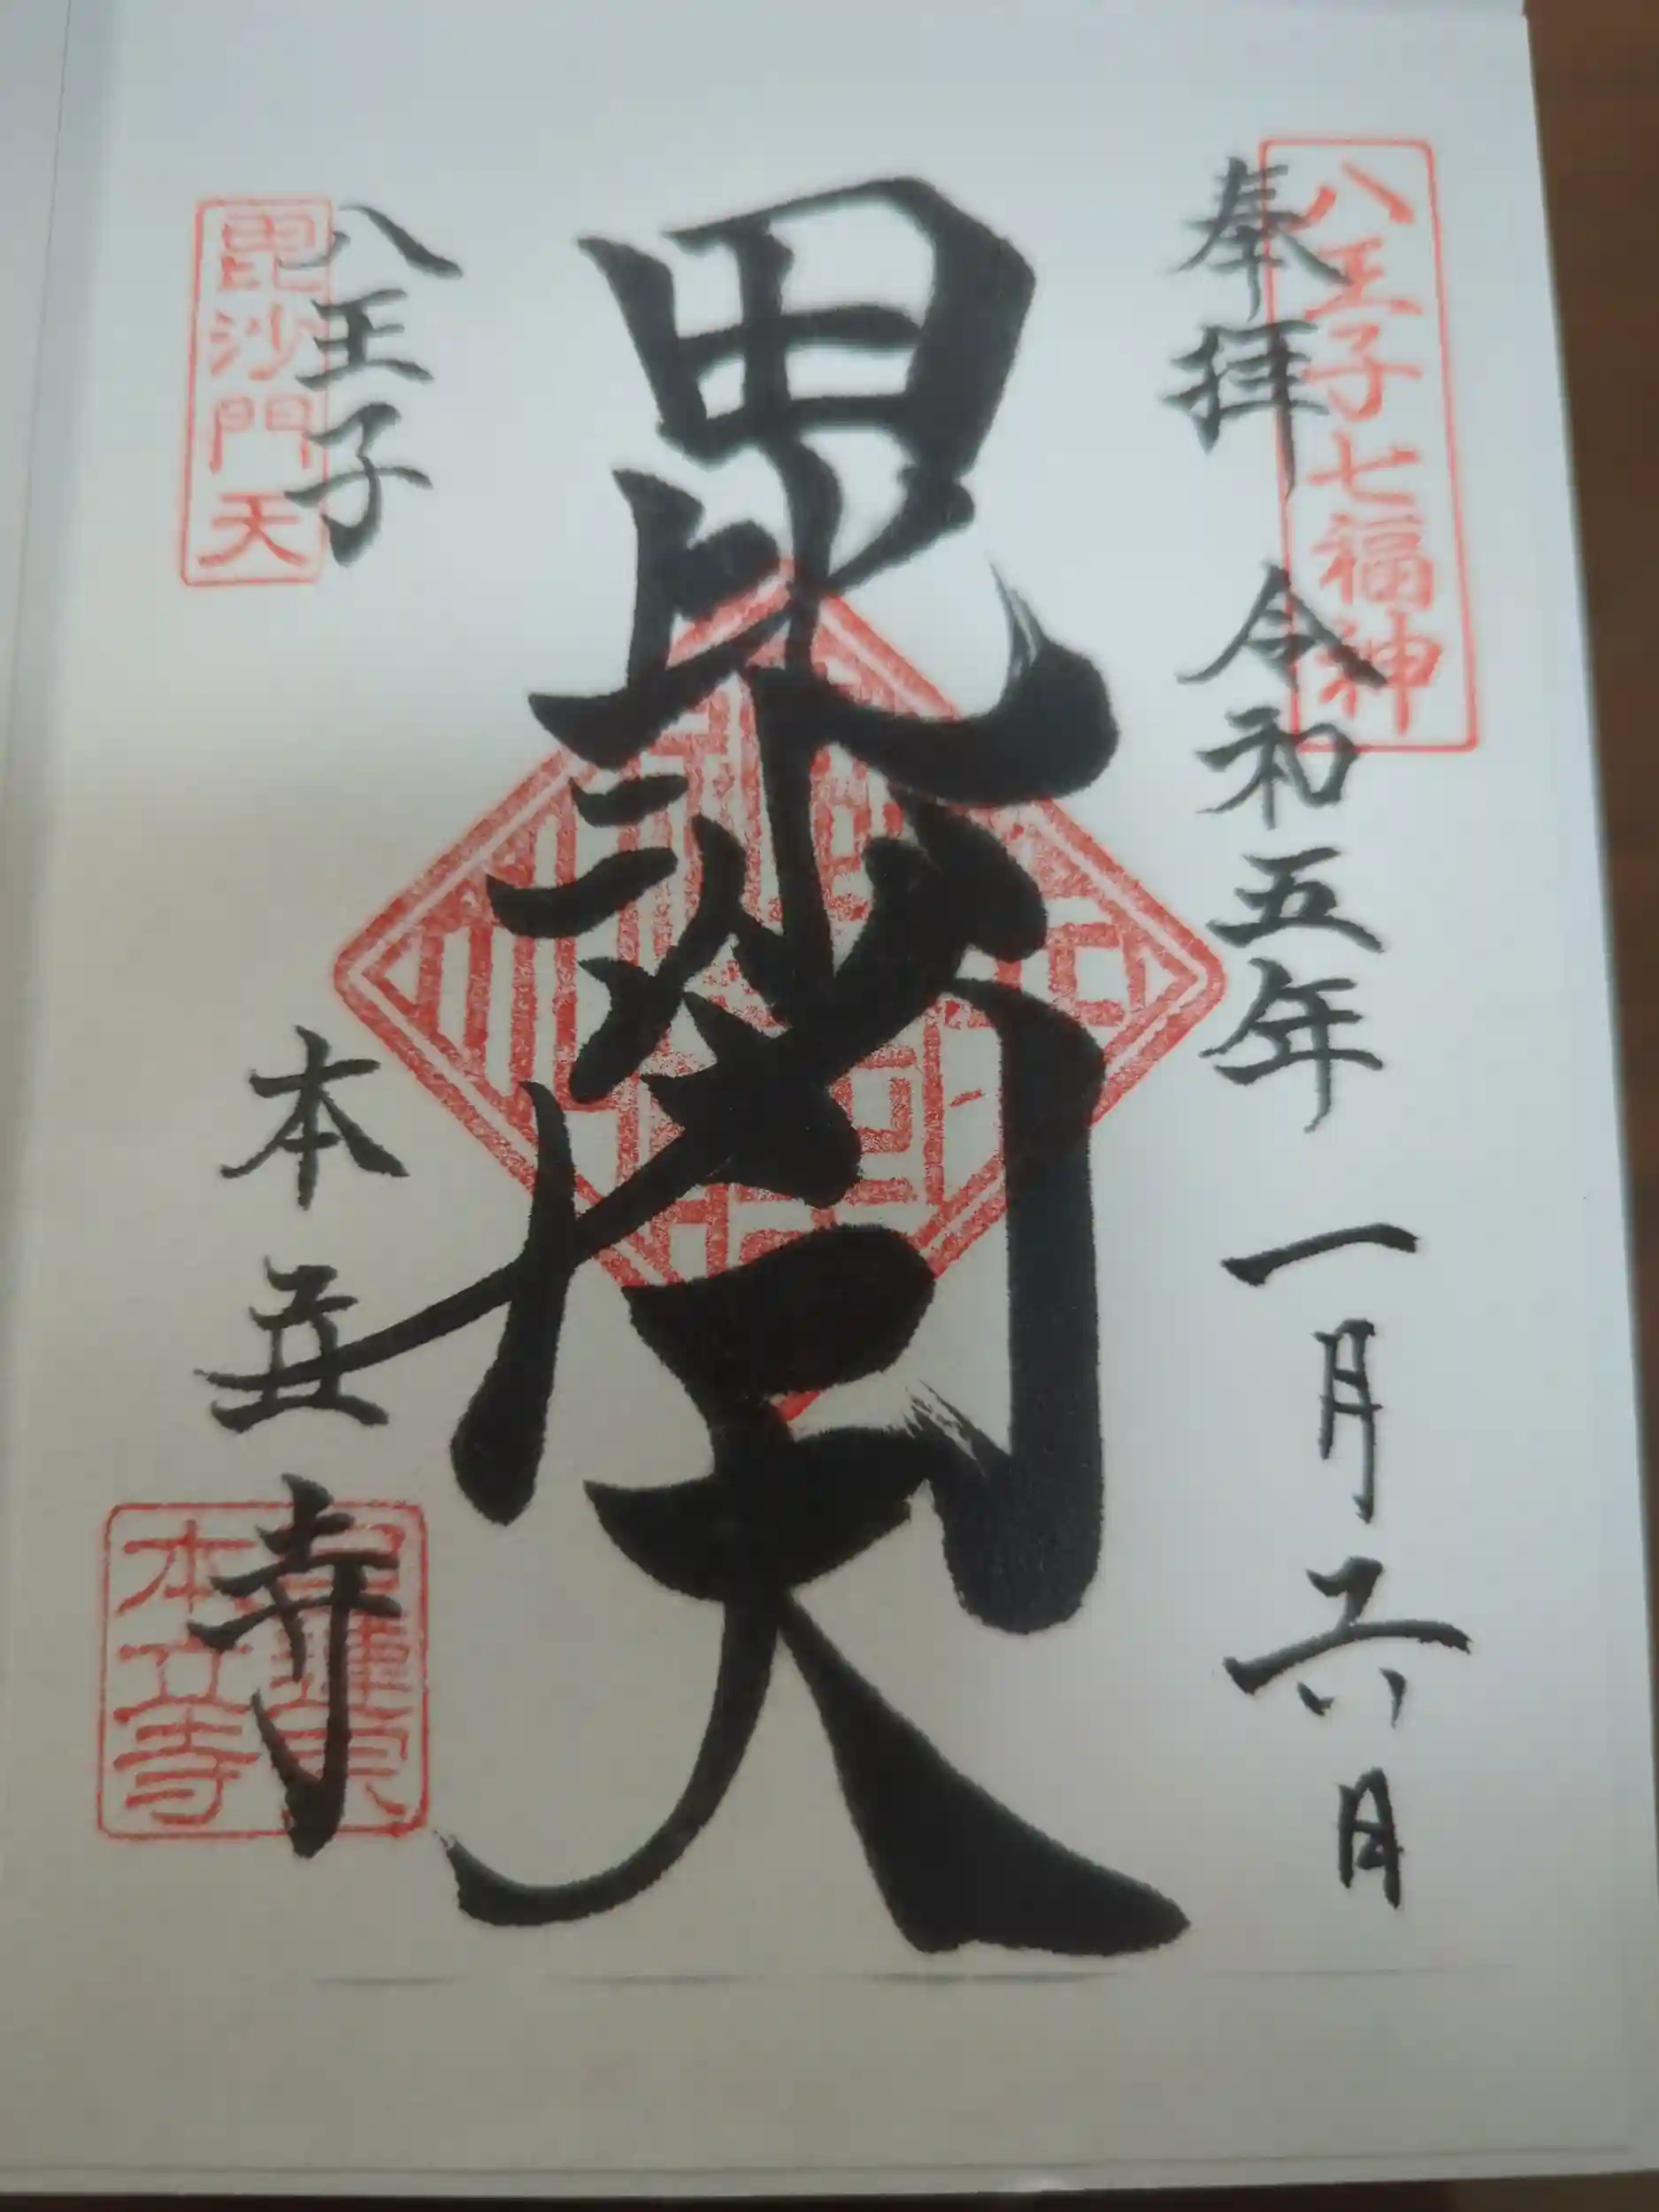 八王子七福神
奉拝 令和五年 一月六日
毘沙門天
八王子
毘沙門天
本立寺
本立寺